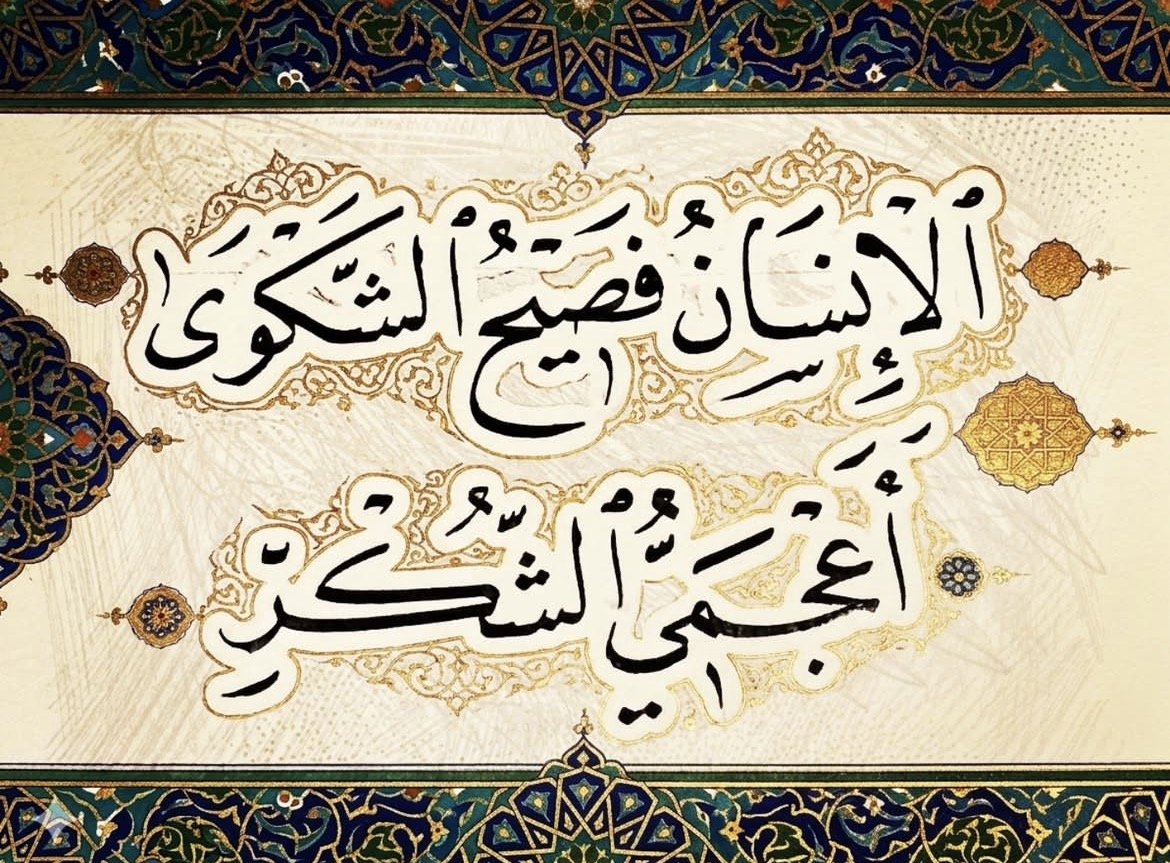 ٱلْإِنْسَانُ فَصِيحُ ٱلشَّكْوَى
أَعْجَمِيُّ ٱلشُّكْرِ